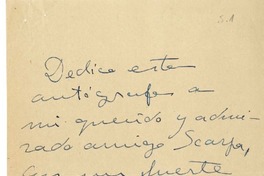 S.A
Dedico este
autógrafo a
mi querido y admi-
rado amigo Scarpa,
con un fuerte